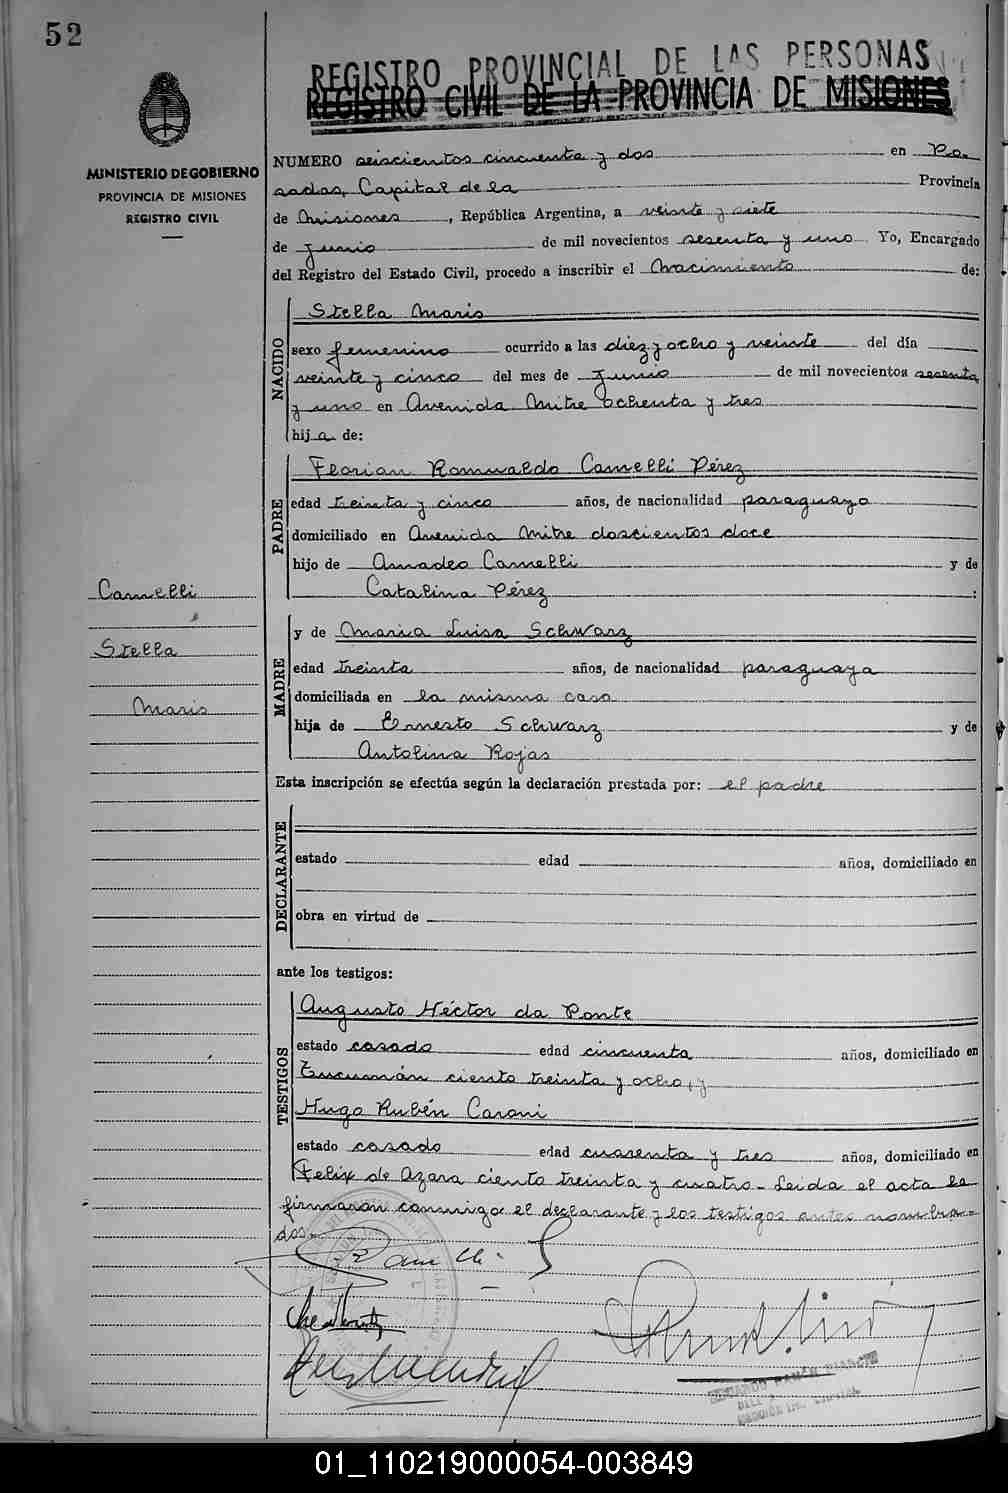 52
REGISTRO PROVINCIAL DE LAS PERSONAS
REGISTRO CIVIL DE LA PROVINCIA DE MISIONES
MINISTERIO DE GOBIERNO
PROVINCIA DE MISIONES
REGISTRO CIVIL
NUMERO seiscientos cincuenta y dos en Po-
sadas, Capital de la Provincia
de Misiones, República Argentina, a veinte y siete
de junio de mil novecientos sesenta y uno Yo, Encargado
del Registro del Estado Civil, procedo a inscribir el Nacimiento de:
NACIDO
Stella Maris
sexo femenino ocurrido a las diez y ocho y veinte del día
veinte y cinco del mes de junio de mil novecientos sesenta
y uno en Avenida Mitre ochenta y tres
hija de:
PADRE
Florian Romualdo Camelli Pérez
edad treinta y cinco años, de nacionalidad paraguayo
domiciliado en Avenida Mitre doscientos doce
hijo de Amadeo Camelli y de
Catalina Pérez :
Camelli
Stella
Maris
MADRE
y de Maria Luisa Schwarz
edad treinta años, de nacionalidad paraguaya
domiciliada en la misma casa
hija de Ernesto Schwarz y de
Antolina Rojas
Esta inscripción se efectúa según la declaración prestada por: el padre
DECLARANTE
estado edad años, domiciliado en
obra en virtud de
ante los testigos:
TESTIGOS
Augusto Héctor da Ponte
estado casado edad cincuenta años, domiciliado en
Tucumán ciento treinta y ocho, y
Hugo Rubén Caroni
estado casado edad cuarenta y tres años, domiciliado en
Felix de Azara ciento treinta y cuatro - Leida el acta la
firmaron conmigo el declarante y los testigos antes nombra-
dos.-
01_110219000054-003849